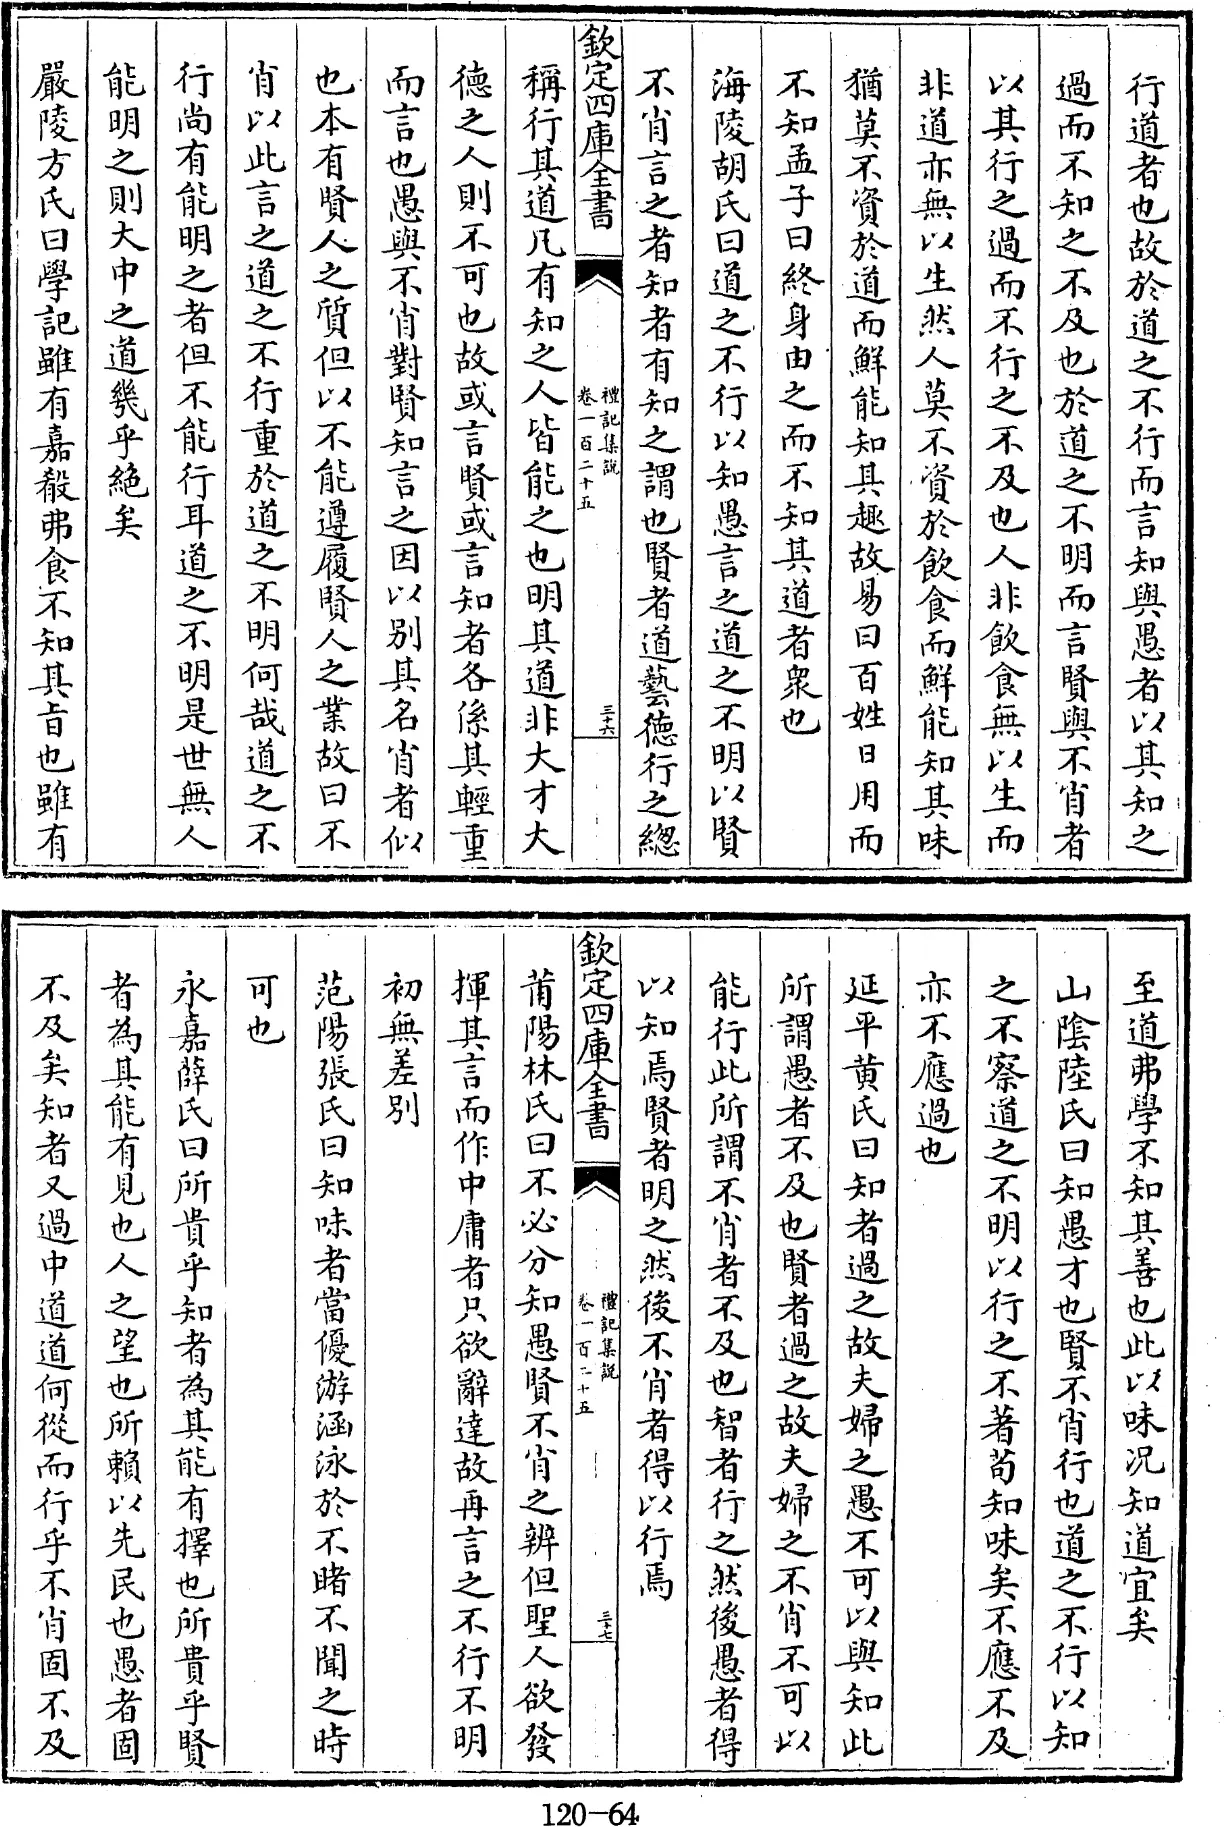 行道者也故於道之不行而言知與愚者以其知之
過而不知之不及也於道之不明而言賢與不肖者
以其行之過而不行之不及也人非飲食無以生而
非道亦無以生然人莫不資於飲食而鮮能知其味
猶莫不資於道而鮮能知其趣故易曰百姓日用而
不知孟子曰終身由之而不知其道者衆也
海陵胡氏曰道之不行以知愚言之道之不明以賢
不肖言之者知者有知之謂也賢者道藝德行之總
欽定四庫全書
禮記集說
卷一百二十五
三十六
稱行其道凡有知之人皆能之也明其道非大才大
德之人則不可也故或言賢或言知者各係其輕重
而言也愚與不肖對賢知言之因以別其名肖者似
也本有賢人之質但以不能遵履賢人之業故曰不
肖以此言之道之不行重於道之不明何哉道之不
行尚有能明之者但不能行耳道之不明是世無人
能明之則大中之道幾乎絶矣
嚴陵方氏曰學記雖有嘉殽弗食不知其旨也雖有
至道弗學不知其善也此以味況知道宜矣
山陰陸氏曰知愚才也賢不肖行也道之不行以知
之不察道之不明以行之不著苟知味矣不應不及
亦不應過也
延平黄氏曰知者過之故夫婦之愚不可以與知此
所謂愚者不及也賢者過之故夫婦之不肖不可以
能行此所謂不肖者不及也智者行之然後愚者得
以知焉賢者明之然後不肖者得以行焉
欽定四庫全書
禮記集說
卷一百二十五
三十七
莆陽林氏曰不必分知愚賢不肖之辨但聖人欲發
揮其言而作中庸者只欲辭達故再言之不行不明
初無差別
范陽張氏曰知味者當優游涵泳於不睹不聞之時
可也
永嘉薛氏曰所貴乎知者為其能有擇也所貴乎賢
者為其能有見也人之望也所賴以先民也愚者固
不及矣知者又過中道道何從而行乎不肖固不及
120-64